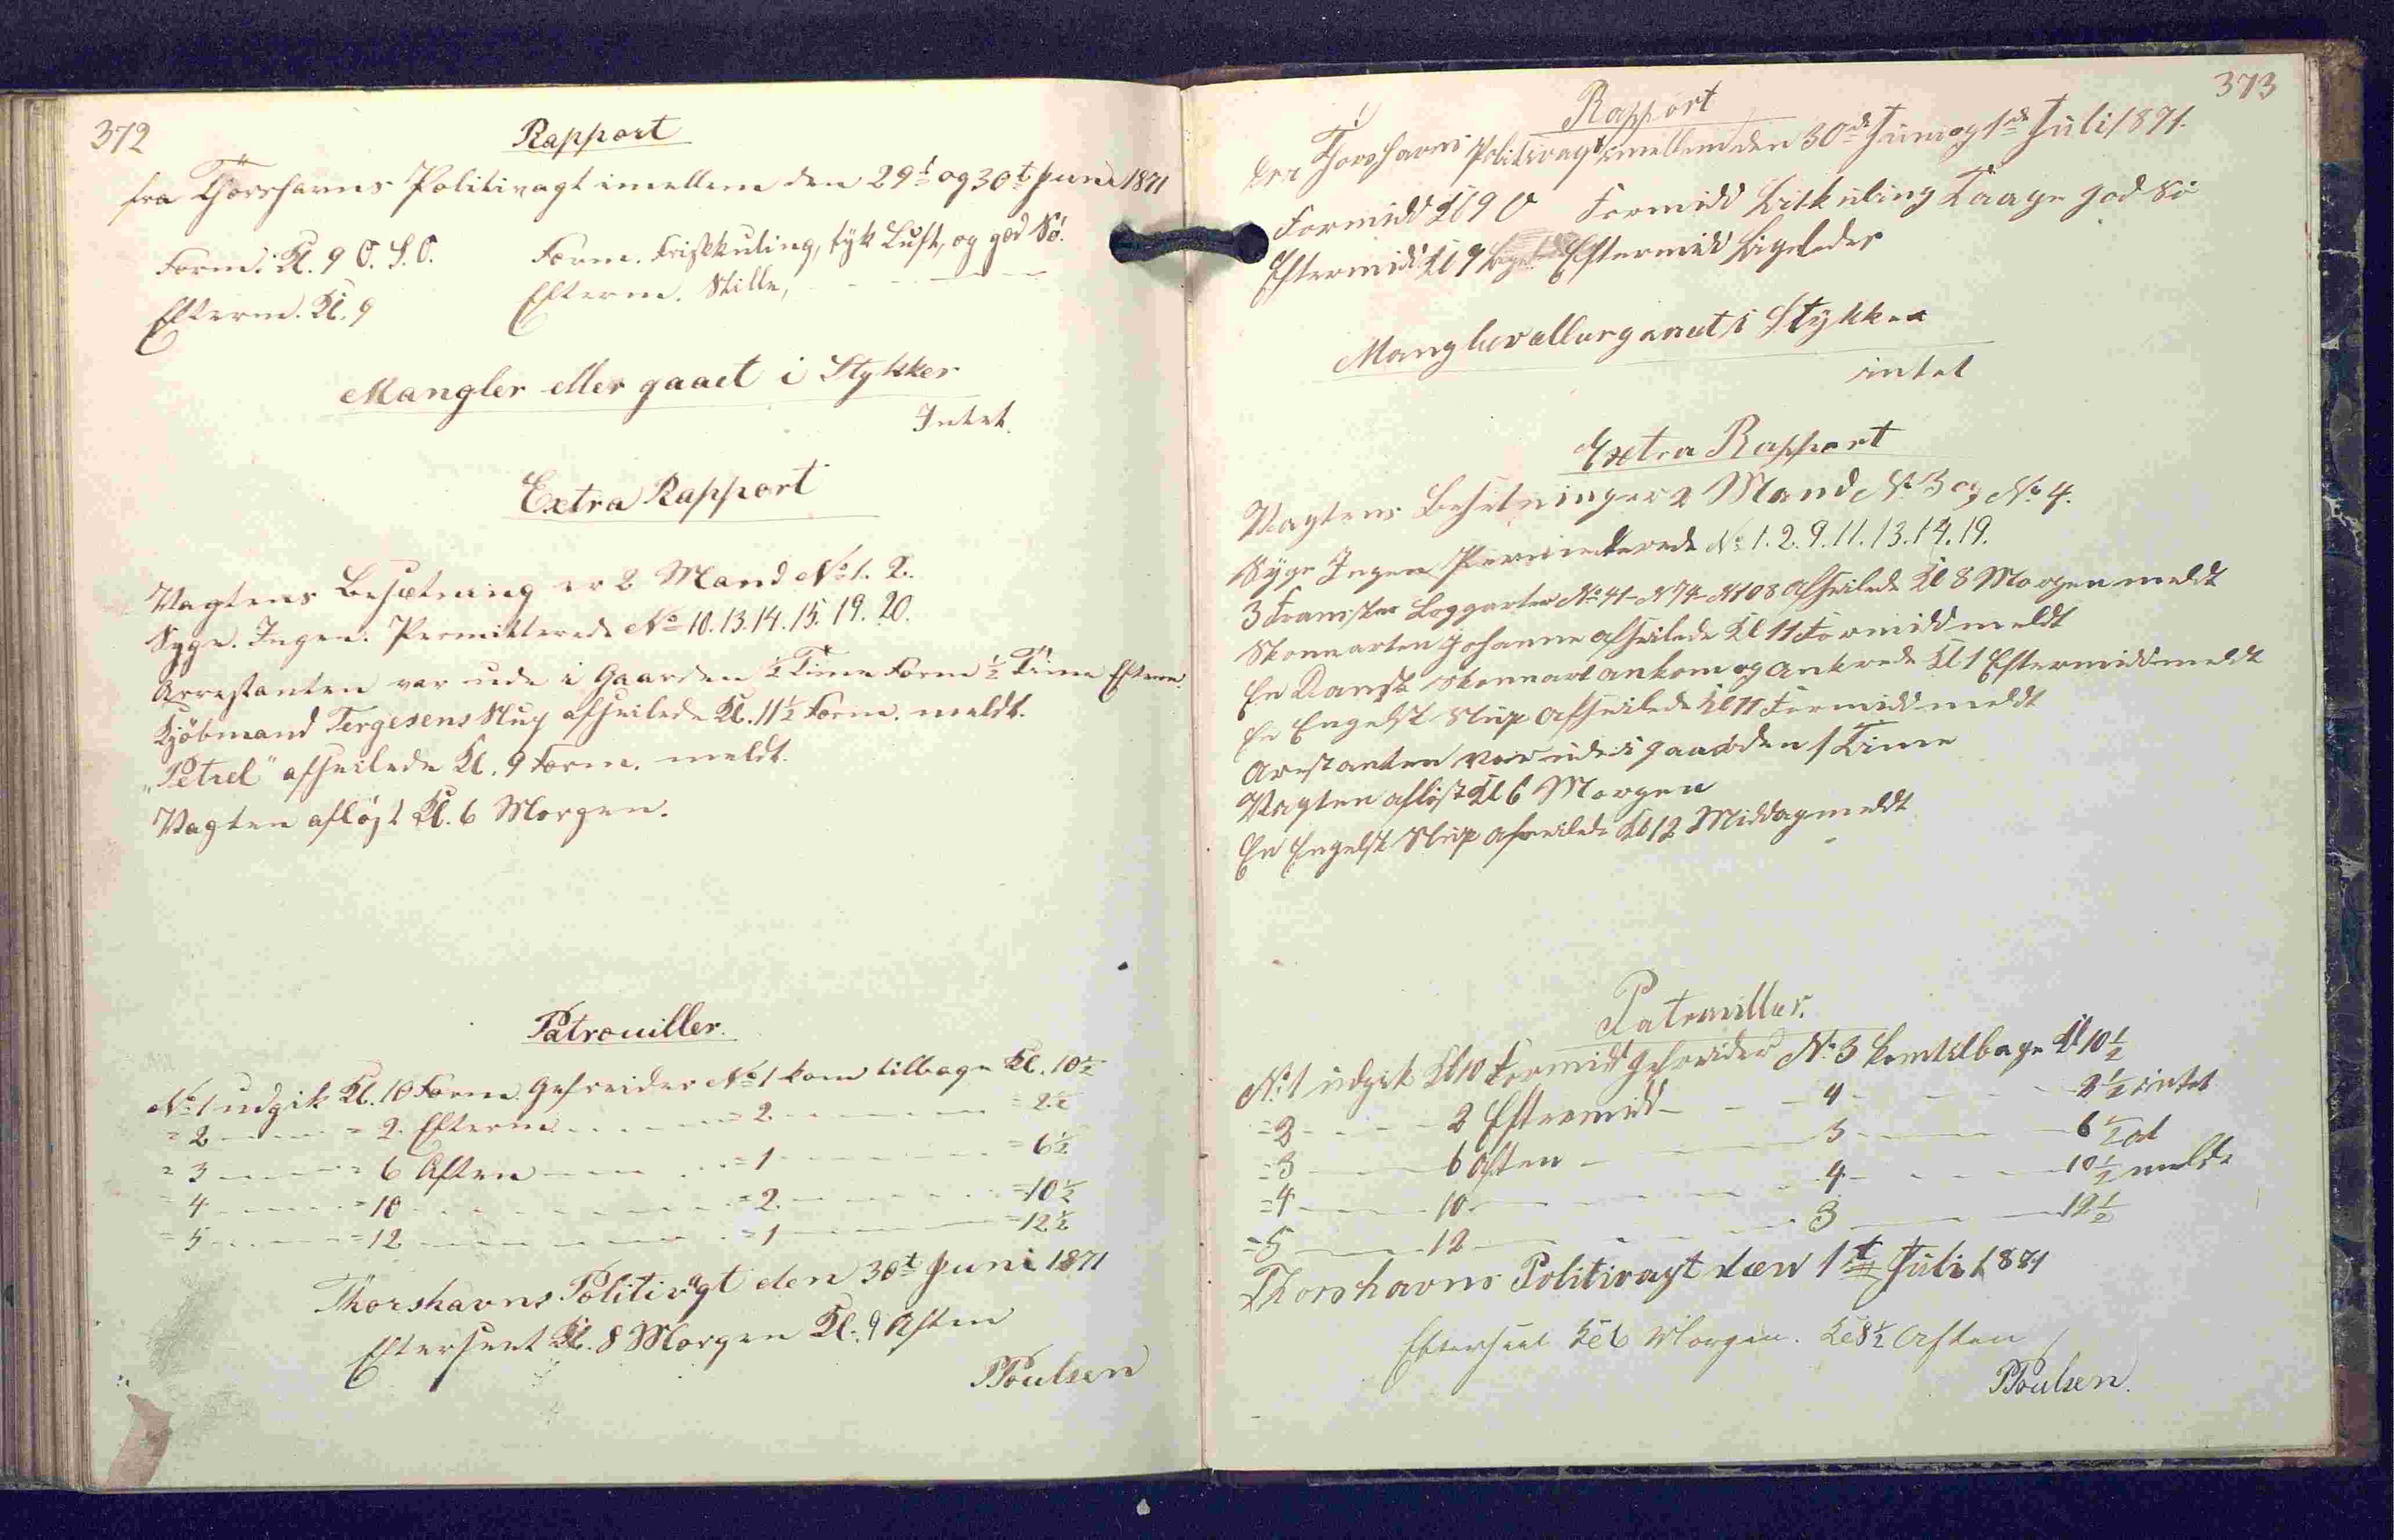 372
Rapport
fra Thorshavns Politivagt imellem den 29t og 30t Juni 1871
Form: Kl. 9 O.S.O. Form. Friskkuling, tyk Luft, og god Sø.
Efterm. Kl. 9 Efterm. Stille, - - - - -
Mangler eller gaaet i Stykker
Intet.
Extra Rapport
Vagtens Besætning er 2 Mand No 1. 2.
Syge. Ingen. Permitterede No 10. 13. 14. 15. 19. 20.
Arrestanten var ude i Gaarden ½ Time Form ½ Time Efterm.
Kjöbmand Tergesens Slup afseilede Kl. 11½ Form. meldt.
"Petrel" afseilede Kl. 9 Form. meldt.
Vagten afløst Kl. 6 Morgen.
Patrouiller.
No 1 udgik Kl. 10 Form. Gefreider No 1 kom tilbage Kl. 10½
= 2 - - - = 2. Efterm. - - - = 2 - - - = 2½
= 3 - - - = 6 Aften - - - = 1 - - - = 6½
= 4 - - - = 10 - - - = 2 - - - = 10½
= 5 - - - = 12 - - - = 1 - - - = 12½
Thorshavns Politivagt den 30t Juni 1871
Efterseet Kl. 8 Morgen Kl. 9 Aften
PPoulsen
373
Rapport
Thorshavns Politivagt imellem den 30de Juni og 1de Juli 1871.
Formidd Kl 9 O Formidd Litkuling Taage god Sö
Eftermidd Kl 9 Eftermidd Ligeledes
Mangler eller ganet i Stykker
intet
Extra Rapport
Vagtens Besetninger 2 Mand No 3 og No 4.
Syge Ingen Permitterede No 1. 2. 9. 11. 13. 14. 19.
3 Franske Loggarter No 41 - N 74 - N 108 afseilede Kl 8 Morgen meldt
Skonnarten Johanne afseilede Kl 11 Formidd meldt
En Dansk Skonnart ankom og ankrede Kl 1 Eftermidd meldt
En Engelsk Slup afseilede Kl 11 Formidd meldt
Arestanten var ude i gaarden 1 Time
Vagten aflöst Kl 6 Morgen
En Engelsk Slup afseilede Kl 12 Middag meldt
Patrouiller.
No 1 udgik Kl 10 Formidd Gefreider No 3 kom tilbage Kl 10½
= 2 - - - 2 Eftermidd - - - 4 - - - 2½ intet
= 3 - - - 6 Aften - - - 3 - - - 6½ at
= 4 - - - 10 - - - 4 - - - 10½ melde
= 5 - - - 12 - - - 3 - - - 12½
Thorshavns Politivagt den 1t Juli 1871
Efterseet Kl 6 Morgen. Kl 8½ Aften
PPoulsen.